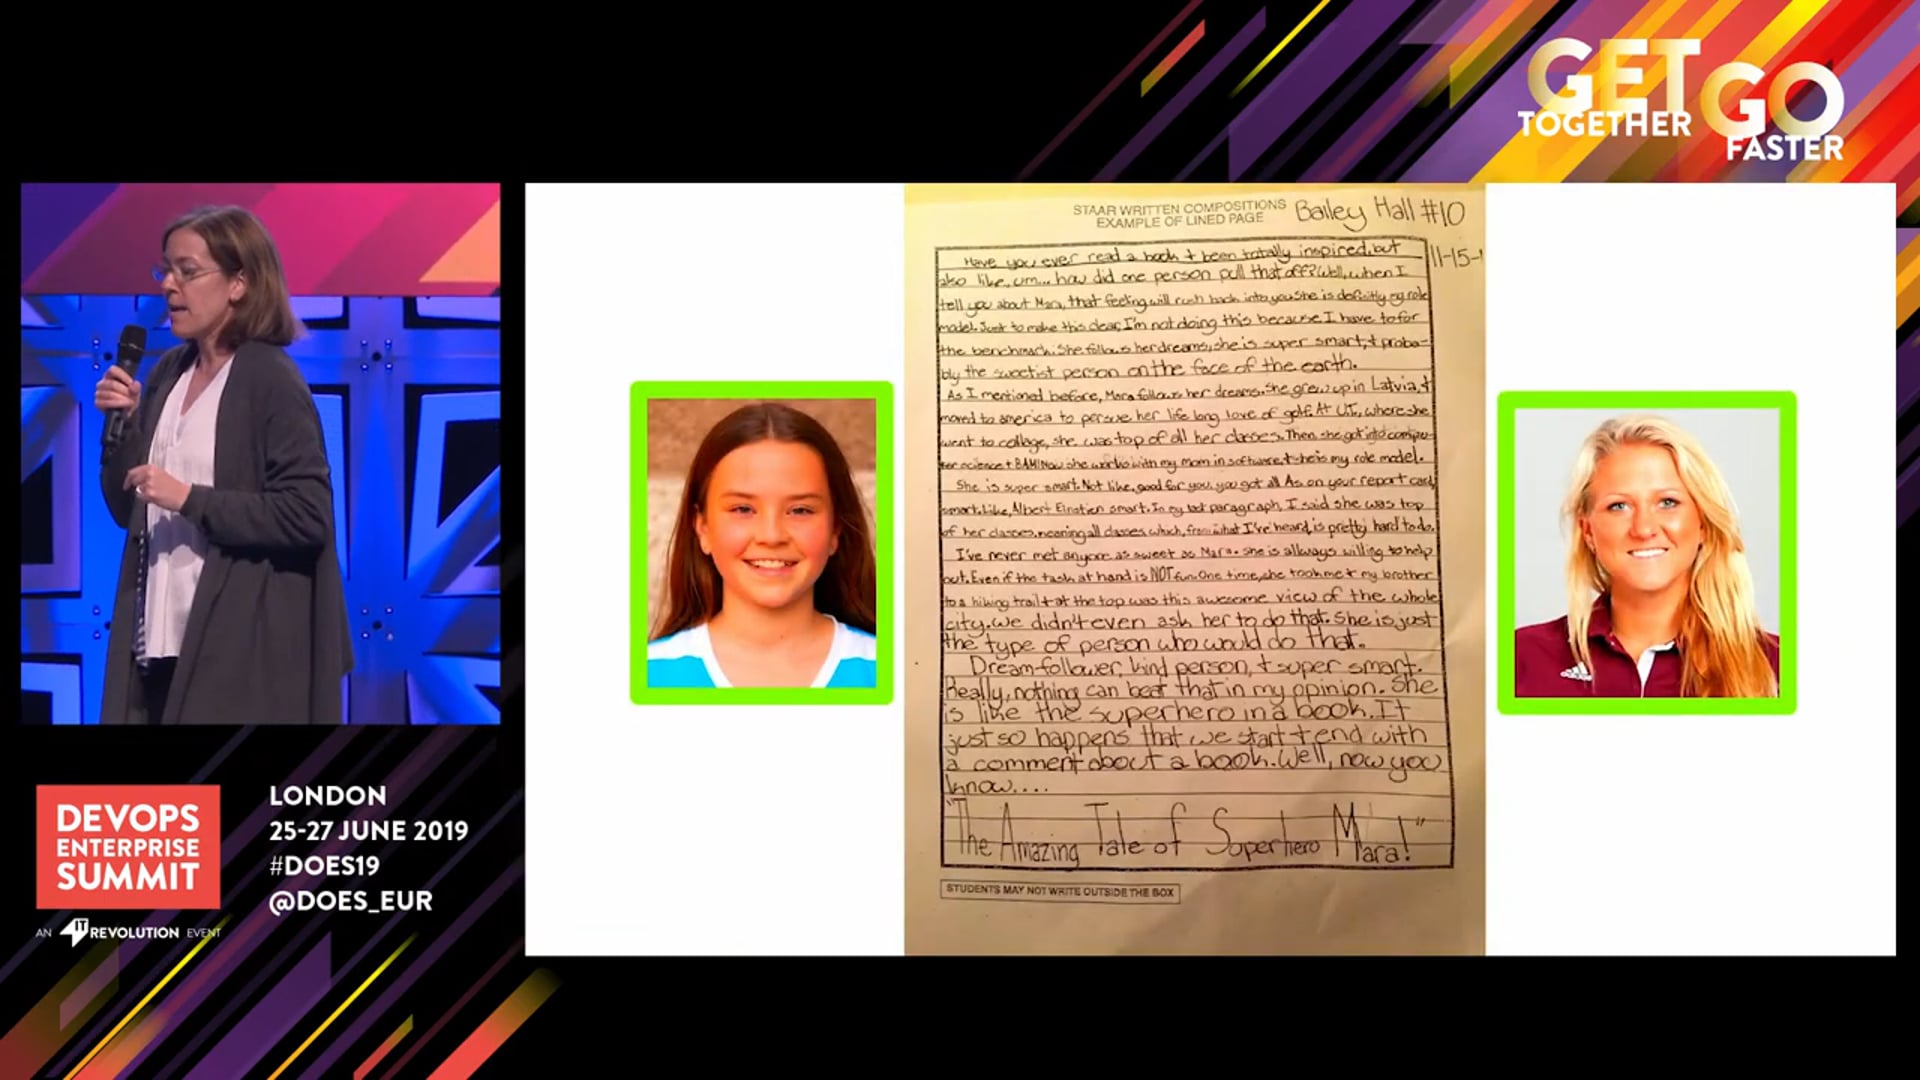 GET
TOGETHER
GO
FASTER
STAAR WRITTEN COMPOSITIONS
EXAMPLE OF LINED PAGE
Bailey Hall #10
11-15-
Have you ever read a book + been totally inspired, but
also like, um... how did one person pull that off? Well, when I
tell you about Mara, that feeling will rush back into you. She is definitly my role
model. Just to make this clear, I'm not doing this because I have to for
the benchmark. She follows her dreams, she is super smart, + proba-
bly the sweetist person on the face of the earth.
As I mentioned before, Mara follows her dreams. She grew up in Latvia, +
moved to america to persue her life long love of golf. At U.T., where she
went to collage, she was top of all her classes. Then she got into compu-
ter science + BAM! Now she works with my mom in software, + she is my role model.
She is super smart. Not like, good for you, you got all As on your report card
smart. Like, Albert Einstien smart. In my last paragraph, I said she was top
of her classes, meaning all classes which, from what I've heard, is pretty hard to do.
I've never met anyone as sweet as Mara. She is allways willing to help
out. Even if the task at hand is NOT fun. One time, she took me + my brother
to a hiking trail + at the top was this awesome view of the whole
city. We didn't even ask her to do that. She is just
the type of person who would do that.
Dream-follower, kind person, + super smart.
Really, nothing can beat that in my opinion. She
is like the superhero in a book. It
just so happens that we start + end with
a comment about a book. Well, now you
know....
"The Amazing Tale of Superhero Mara!"
STUDENTS MAY NOT WRITE OUTSIDE THE BOX
adidas
DEVOPS
ENTERPRISE
SUMMIT
AN IT REVOLUTION EVENT
LONDON
25-27 JUNE 2019
#DOES19
@DOES_EUR